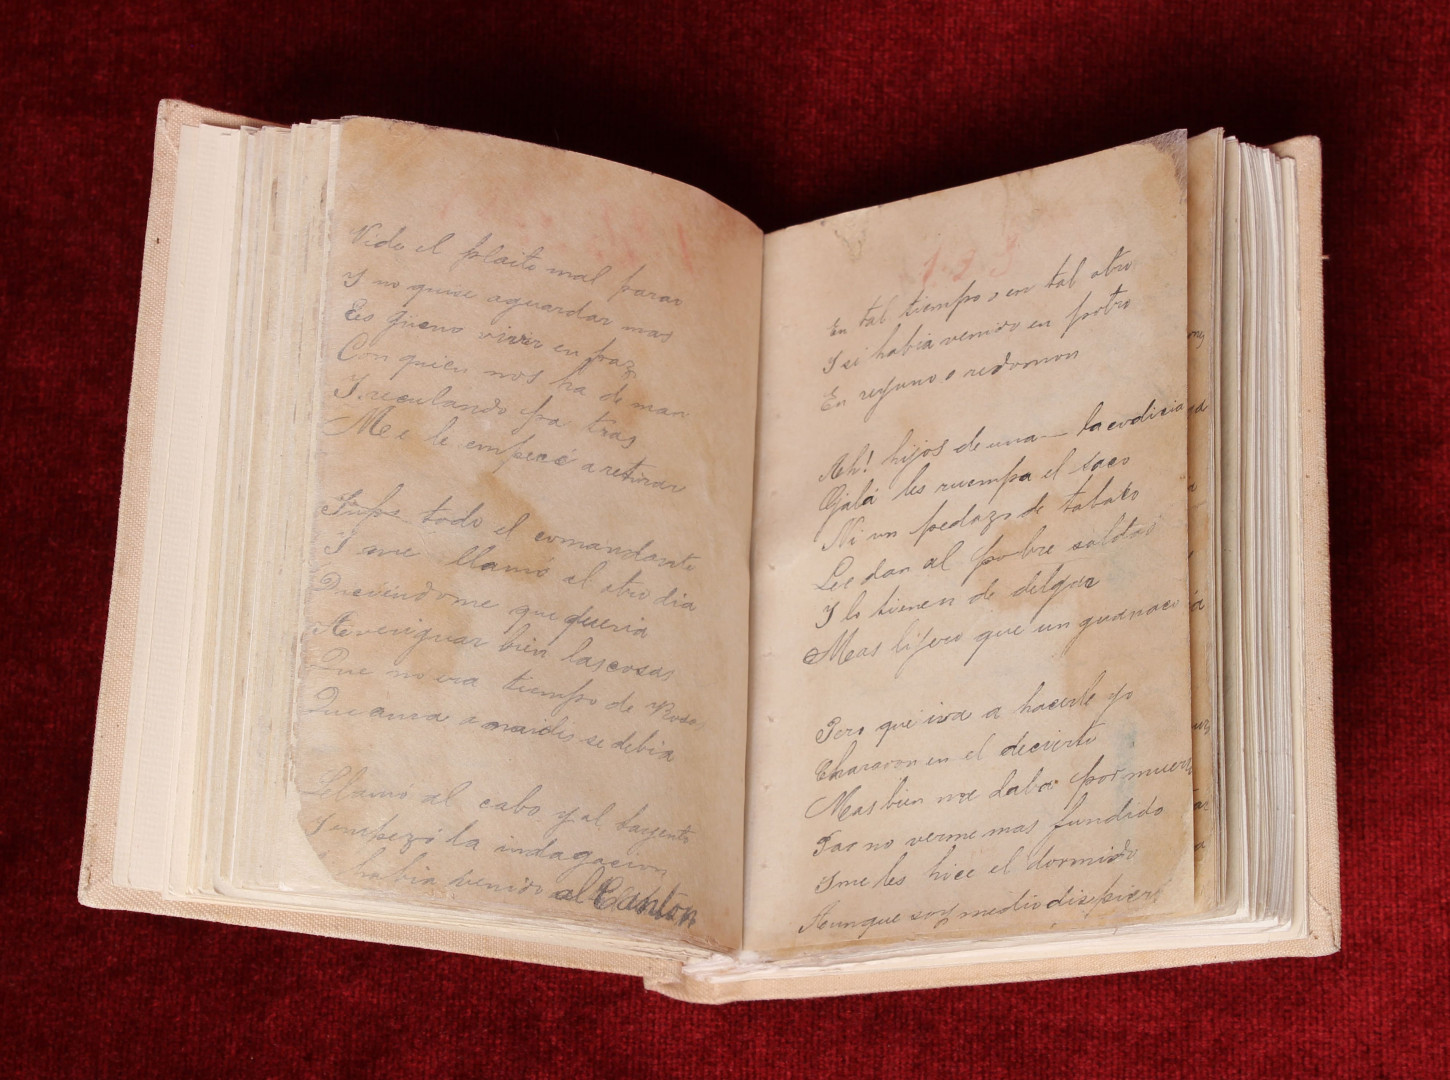 Vido el plaito mal parao
Y no quise aguardar mas
Es gueno vivir en paz
Con quien nos ha de man
Y reculando pa tras
Me le empecé a retirar
Supo todo el comandante
Y me llamó al otro dia
Diciendome que queria
Aveniguar bien las cosas
Que no era tiempo de Rosas
Que aura a naides se debia
Llamó al cabo y al sargento
Y empezó la indagacion
había venido al Canton
123
En tal tiempo o en tal otro
Y si habia venido en potro
En reyuno o redomon
Ah! hijos de una— la codicia
Ojalá les ruempa el saco
Ni un pedazo de tabaco
Le dan al pobre soldao
Y lo tienen de delgao
Mas lijero que un guanaco
Pero qué iva a hacerle yo
Charavon en el decierto
Mas bien me daba por muerto
Pa no verme mas fundido
Y me les hice el dormido
Aunque soy medio dispierto